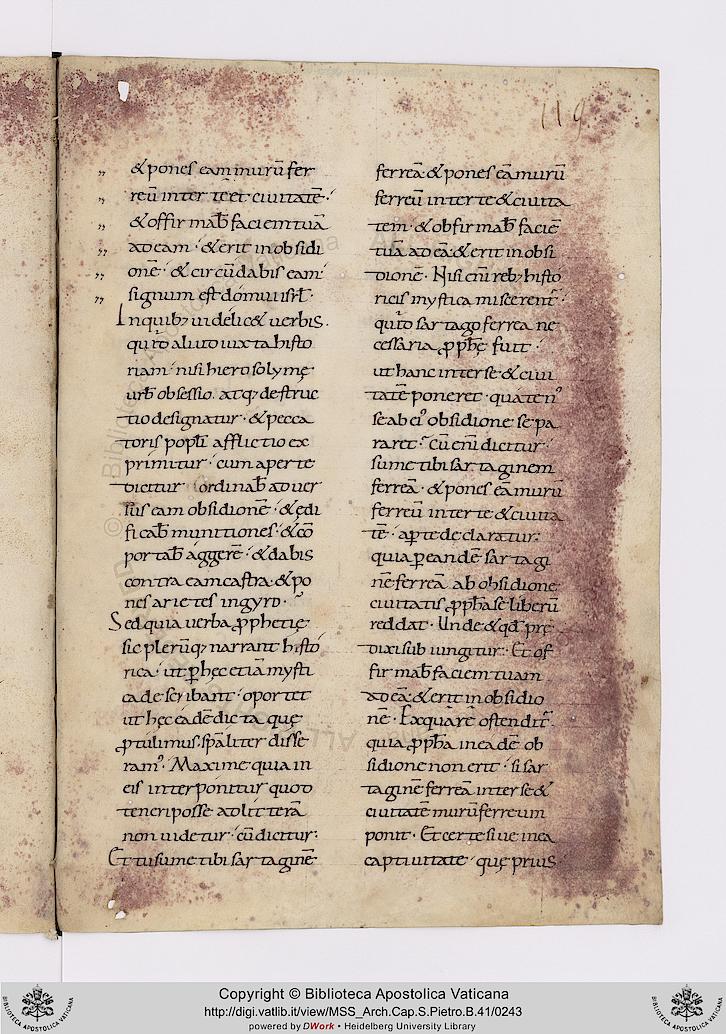 119
„ & pones eam murū fer
„ reū inter te et ciuitatē ·
„ & offirmab̄ faciem tuā
„ ad eam · & erit in obsidi
„ onē · & circūdabis eam ·
„ signum est domui isrl̄ ·
Inquib; uidelic& uerbis ·
quid aliud iuxta histo
riam · nisi hierosolymę
urb̄ obsessio · atq; destruc
tio designatur · & pecca
toris popl̄i afflictio ex
primitur · cum aperte
dicitur · Cordinab̄ aduer
sus eam obsidionē · & ędi
ficab̄ munitiones · & cō
portab̄ aggerē · & dabis
contra eam castra · & po
nes arietes in gyro ·
Sed quia uerba ꝓphetię
sic plerūq; narrant histo
rica · ut ꝑ hęc etiā mysti
ca describant · oportet
ut hęc eadē dicta quę
ꝓtulimus · sp̄aliter disse
ram᾿ · Maxime quia in
eis interponitur quod
teneri posse ad litterā
non uidetur · cū dicitur ·
Et tu sume tibi sartaginē
ferreā · & pones eā murū
ferreū inter te & ciuita
tem · & obfirmab̄ faciē
tuā ad eā · & erit in obsi
dionē · Nisi eni reb; histo
ricis mystica miscerent᾿ ·
quid sartago ferrea ne
cessaria ꝓph̄ę fuit ·
ut hanc inter se & ciui
tatē poneret · quaten᾿
se ab ei᾿ obsidione sepa
raret · Cū eni dicitur ·
sume tibi sartaginem
ferreā · & pones eā murū
ferreū inter te & ciuita
tē · aꝑte declaratur ·
quia ꝑ eandē sartagi
nē ferreā ab obsidione
ciuitatis ꝓpha se liberū
reddat · Unde & qđ prę
dixi subiungitur · Et of
firmab̄ faciem tuam
ad eā · & erit in obsidio
nē · Exquare ostendit᾿
quia ꝓph̄a in eadē ob
sidione non erit · si sar
taginē ferreā inter se &
ciuitatē murū ferreum
ponit · Et certe siue in ea
captiuitate · quę prius
Copyright © Biblioteca Apostolica Vaticana
http://digi.vatlib.it/view/MSS_Arch.Cap.S.Pietro.B.41/0243
powered by DWork • Heidelberg University Library